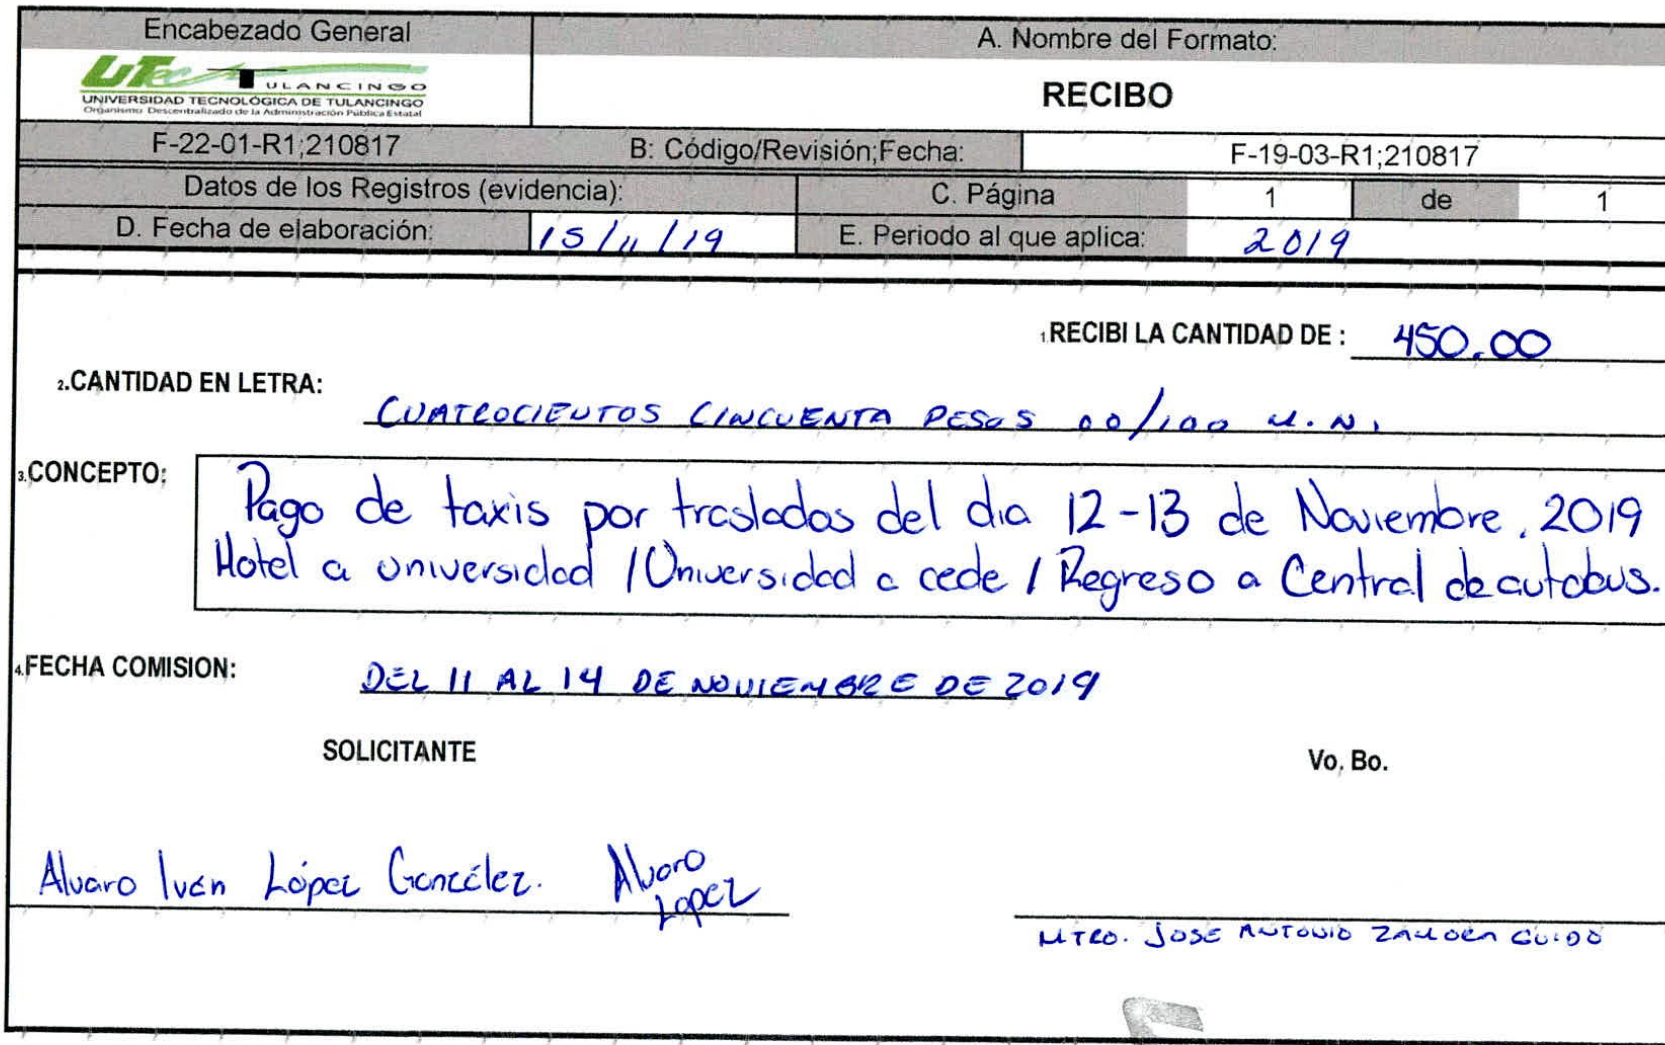 Encabezado General
A. Nombre del Formato:
UTec TULANCINGO
UNIVERSIDAD TECNOLÓGICA DE TULANCINGO
Organismo Descentralizado de la Administración Pública Estatal
RECIBO
F-22-01-R1;210817 B: Código/Revisión;Fecha: F-19-03-R1;210817
Datos de los Registros (evidencia): C. Página 1 de 1
D. Fecha de elaboración: 15/11/19 E. Periodo al que aplica: 2019
1.RECIBI LA CANTIDAD DE : 450.00
2.CANTIDAD EN LETRA:
CUATROCIENTOS CINCUENTA PESOS 00/100 M.N.
3.CONCEPTO:
Pago de taxis por traslados del dia 12-13 de Noviembre, 2019
Hotel a universidad / Universidad a cede / Regreso a Central de autobus.
4.FECHA COMISION: DEL 11 AL 14 DE NOVIEMBRE DE 2019
SOLICITANTE Vo. Bo.
Alvaro Iván López González. Alvaro
Lopez
MTRO. JOSE ANTONIO ZAMORA GUIDO